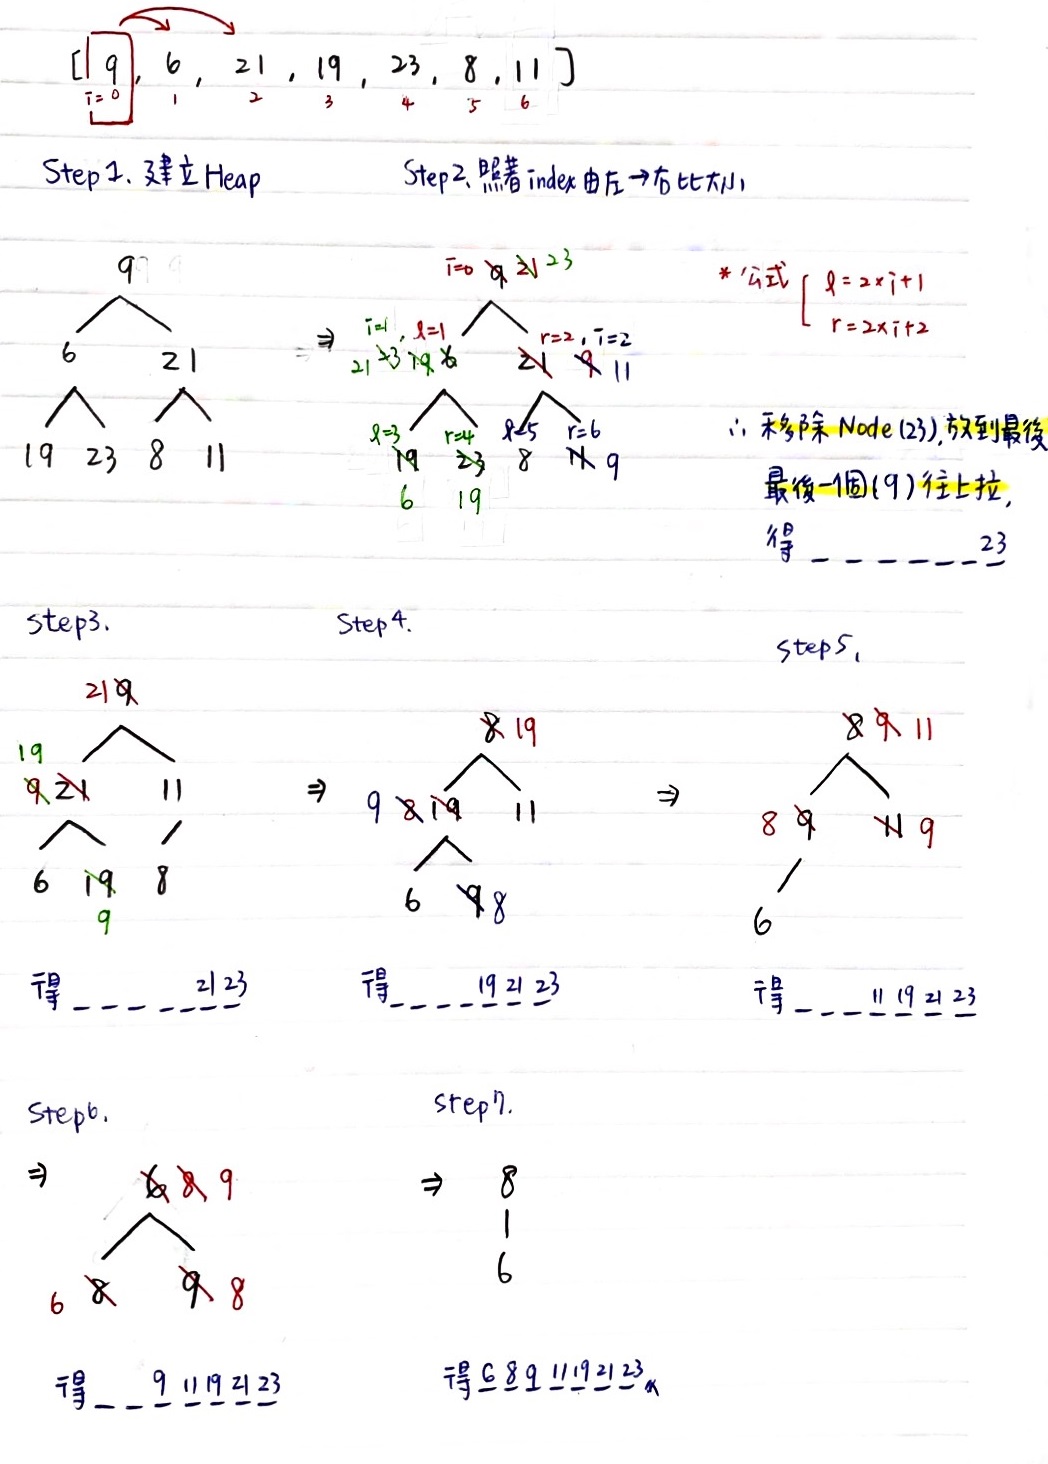 [ 9, 6, 21, 19, 23, 8, 11 ]
i=0 1 2 3 4 5 6
Step 1. 建立 Heap
Step 2. 照著 index 由左→右比大小
9
6 21
19 23 8 11
⇒
i=0 9 21 23
i=1, l=1 r=2, i=2
21 23 19 6 21 9 11
l=3 r=4 l=5 r=6
19 23 8 11 9
6 19
* 公式 [ l = 2×i+1
r = 2×i+2
∴ 移除 Node (23), 放到最後
最後一個 (9) 往上拉,
得 _ _ _ _ _ _ 23
Step3.
21 9
19
9 21 11
6 19 8
9
得 _ _ _ _ _ 21 23
Step4.
⇒
8 19
9 8 19 11
6 9 8
得 _ _ _ _ 19 21 23
Step5.
⇒
8 9 11
8 9 11 9
6
得 _ _ _ 11 19 21 23
Step6.
⇒ 6 8 9
6 8 9 8
得 _ _ 9 11 19 21 23
Step7.
⇒ 8
6
得 6 8 9 11 19 21 23